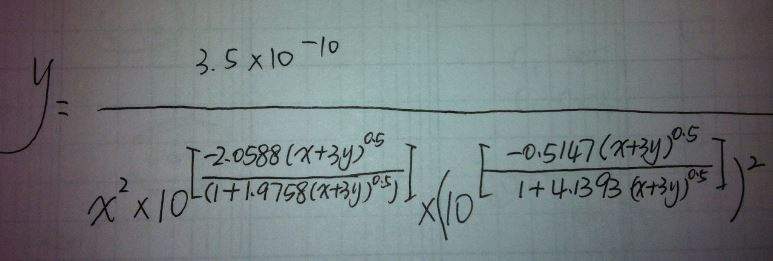 y = \frac{3.5 \times 10^{-10}}{x^2 \times 10^{\left[\frac{-2.0588(x+3y)^{0.5}}{(1+1.9758(x+3y)^{0.5})}\right]} \times \left(10^{\left[\frac{-0.5147(x+3y)^{0.5}}{1+4.1393(x+3y)^{0.5}}\right]}\right)^2}